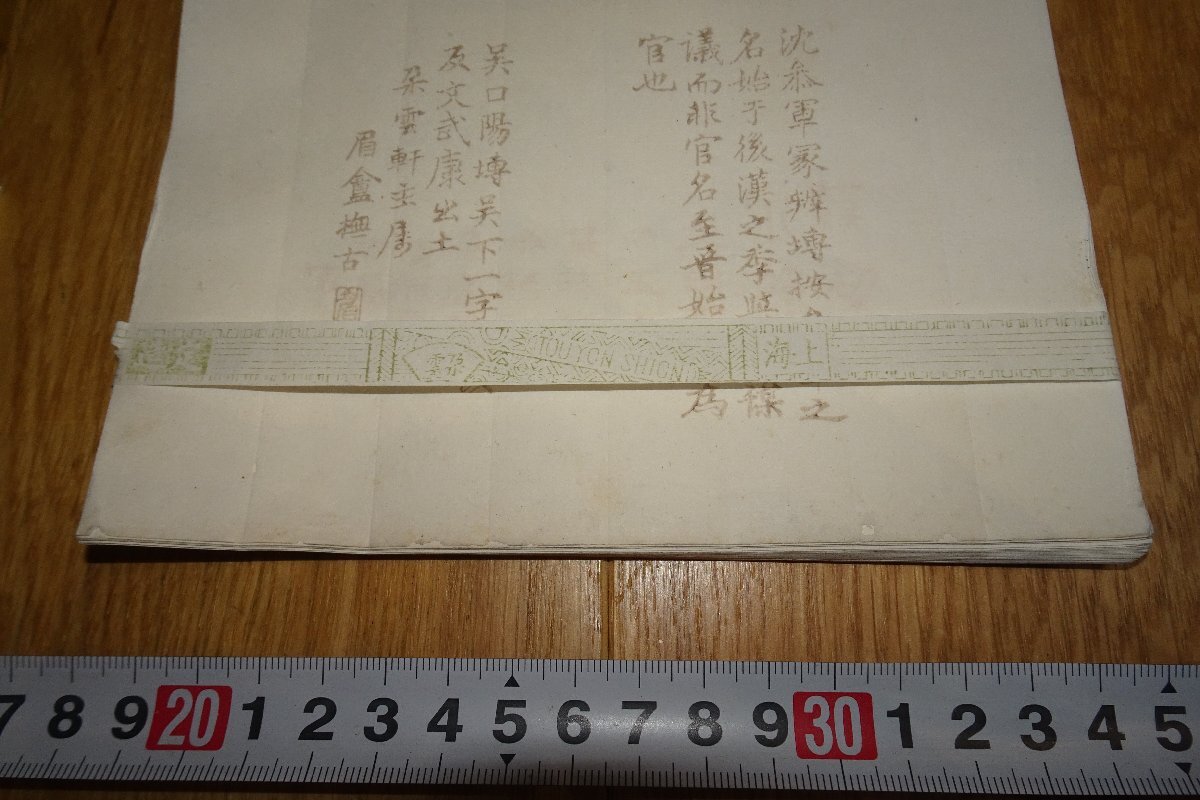 沈参軍冢辨塼按
之
名始于後漢之季
議而非官名至晉始
為
官也
吴口陽塼吴下一字
反文武康出土
朶雲軒
眉盦撫古
TOU YON SHION
朶雲
上海
7 8 9 20 1 2 3 4 5 6 7 8 9 30 1 2 3 4 5